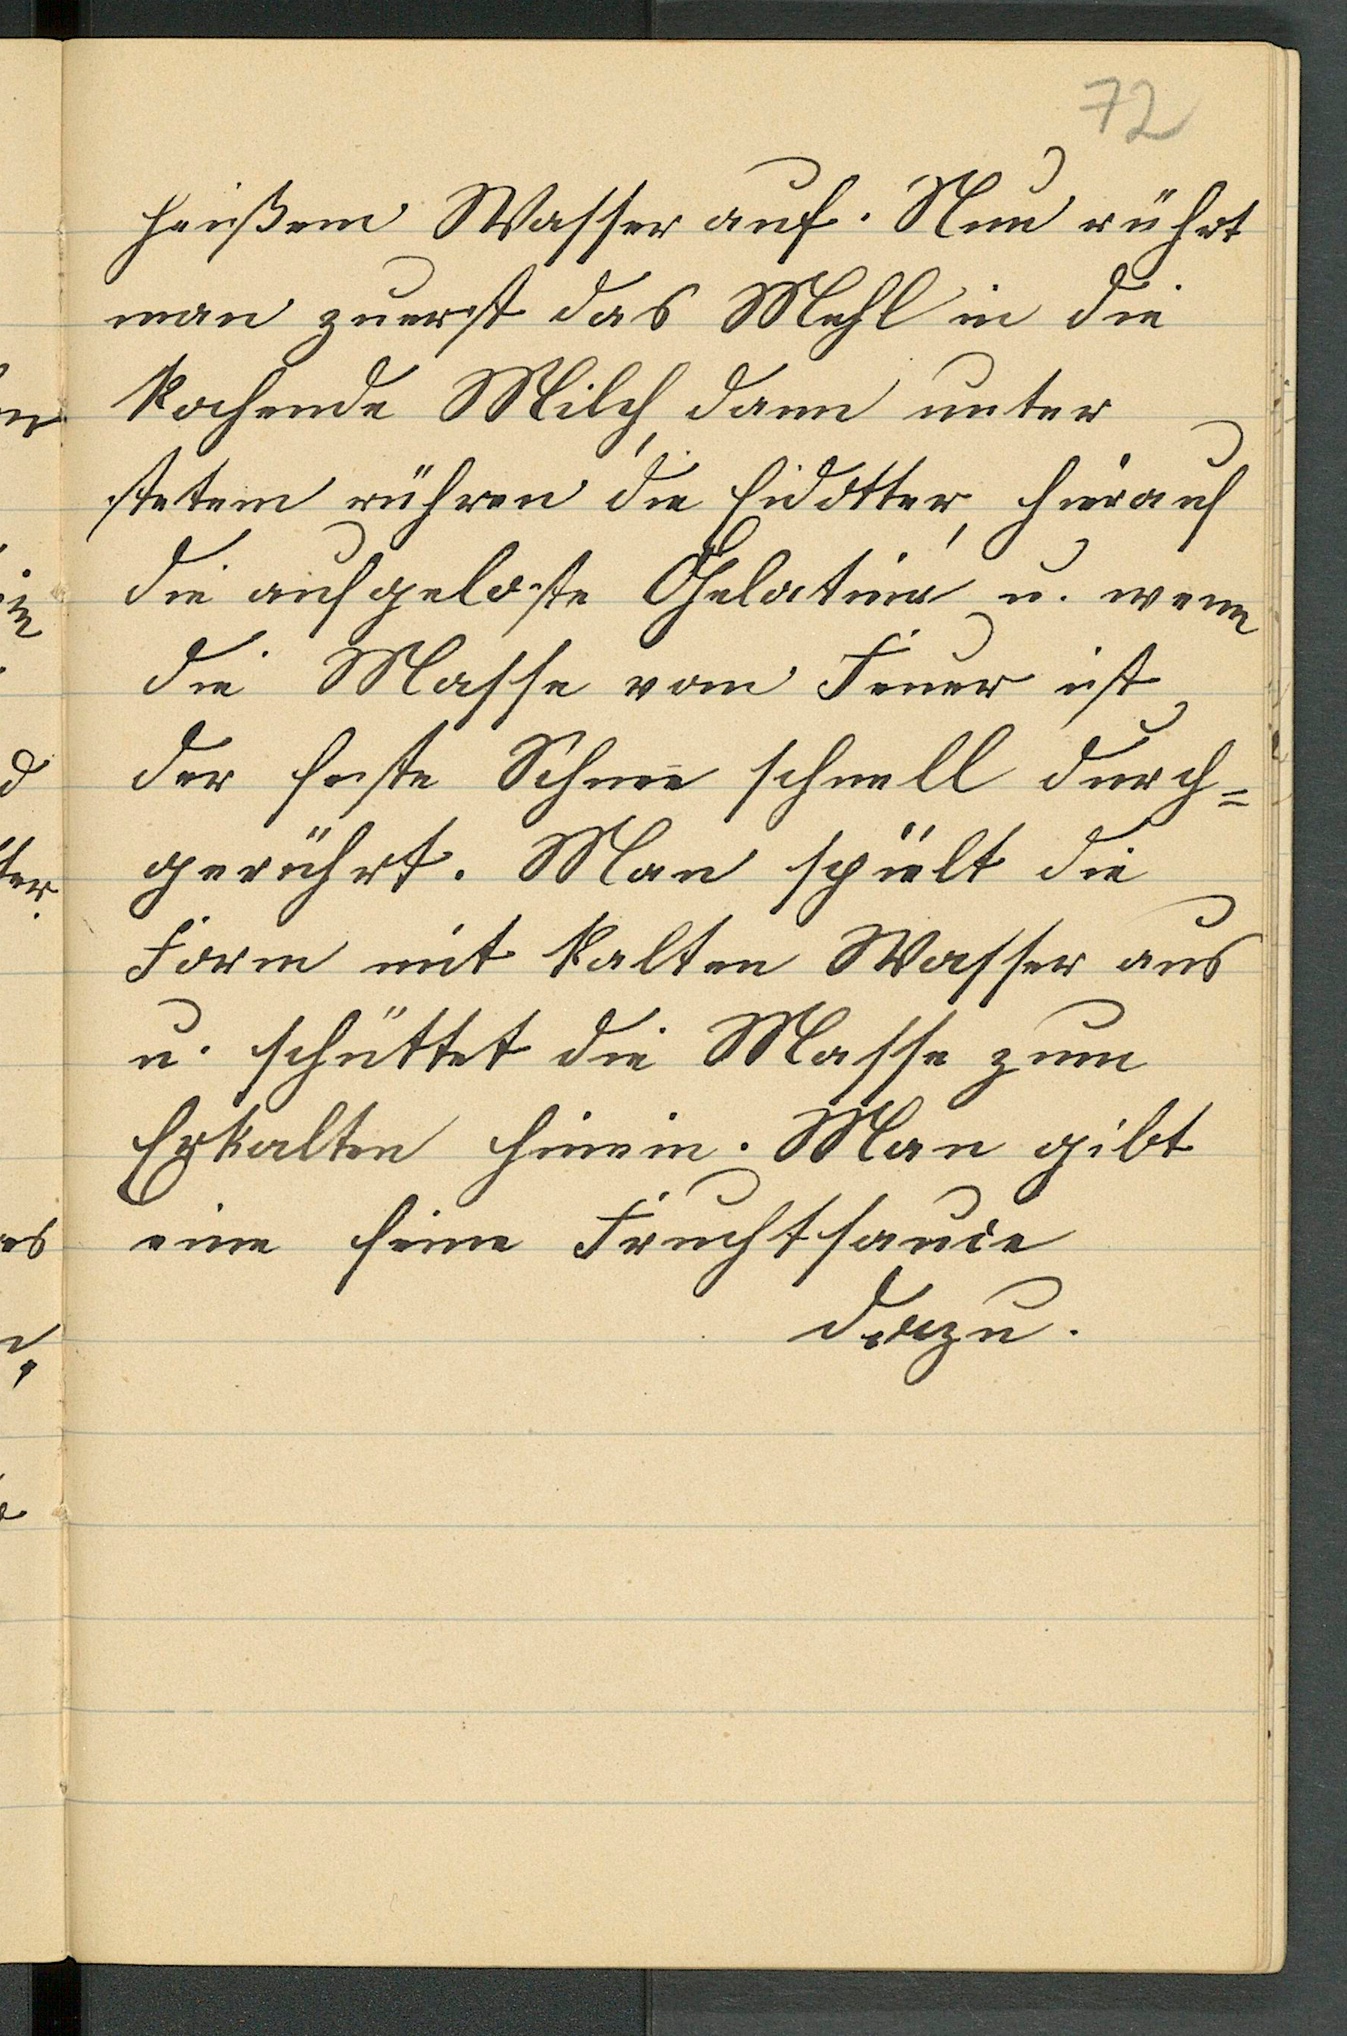 72
heißem Wasser auf. Nun rührt
man zuerst das Mehl in die
kochende Milch, dann unter
stetem rühren die Eidotter, hierauf
die aufgeloste Gelatine u. wenn
die Masse vom Feuer ist
der feste Schnee schnell durch=
gerührt. Man spült die
Form mit kalten Wasser aus
u. schüttet die Masse zum
Erkalten hinein. Man gibt
eine feine Fruchtsauce
dazu.